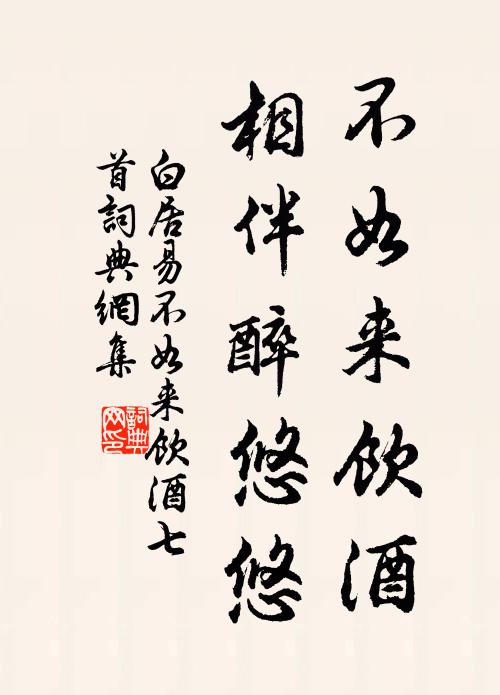 不如来饮酒
相伴醉悠悠
白居易不如来饮酒七
首词典網集
詞典
网印